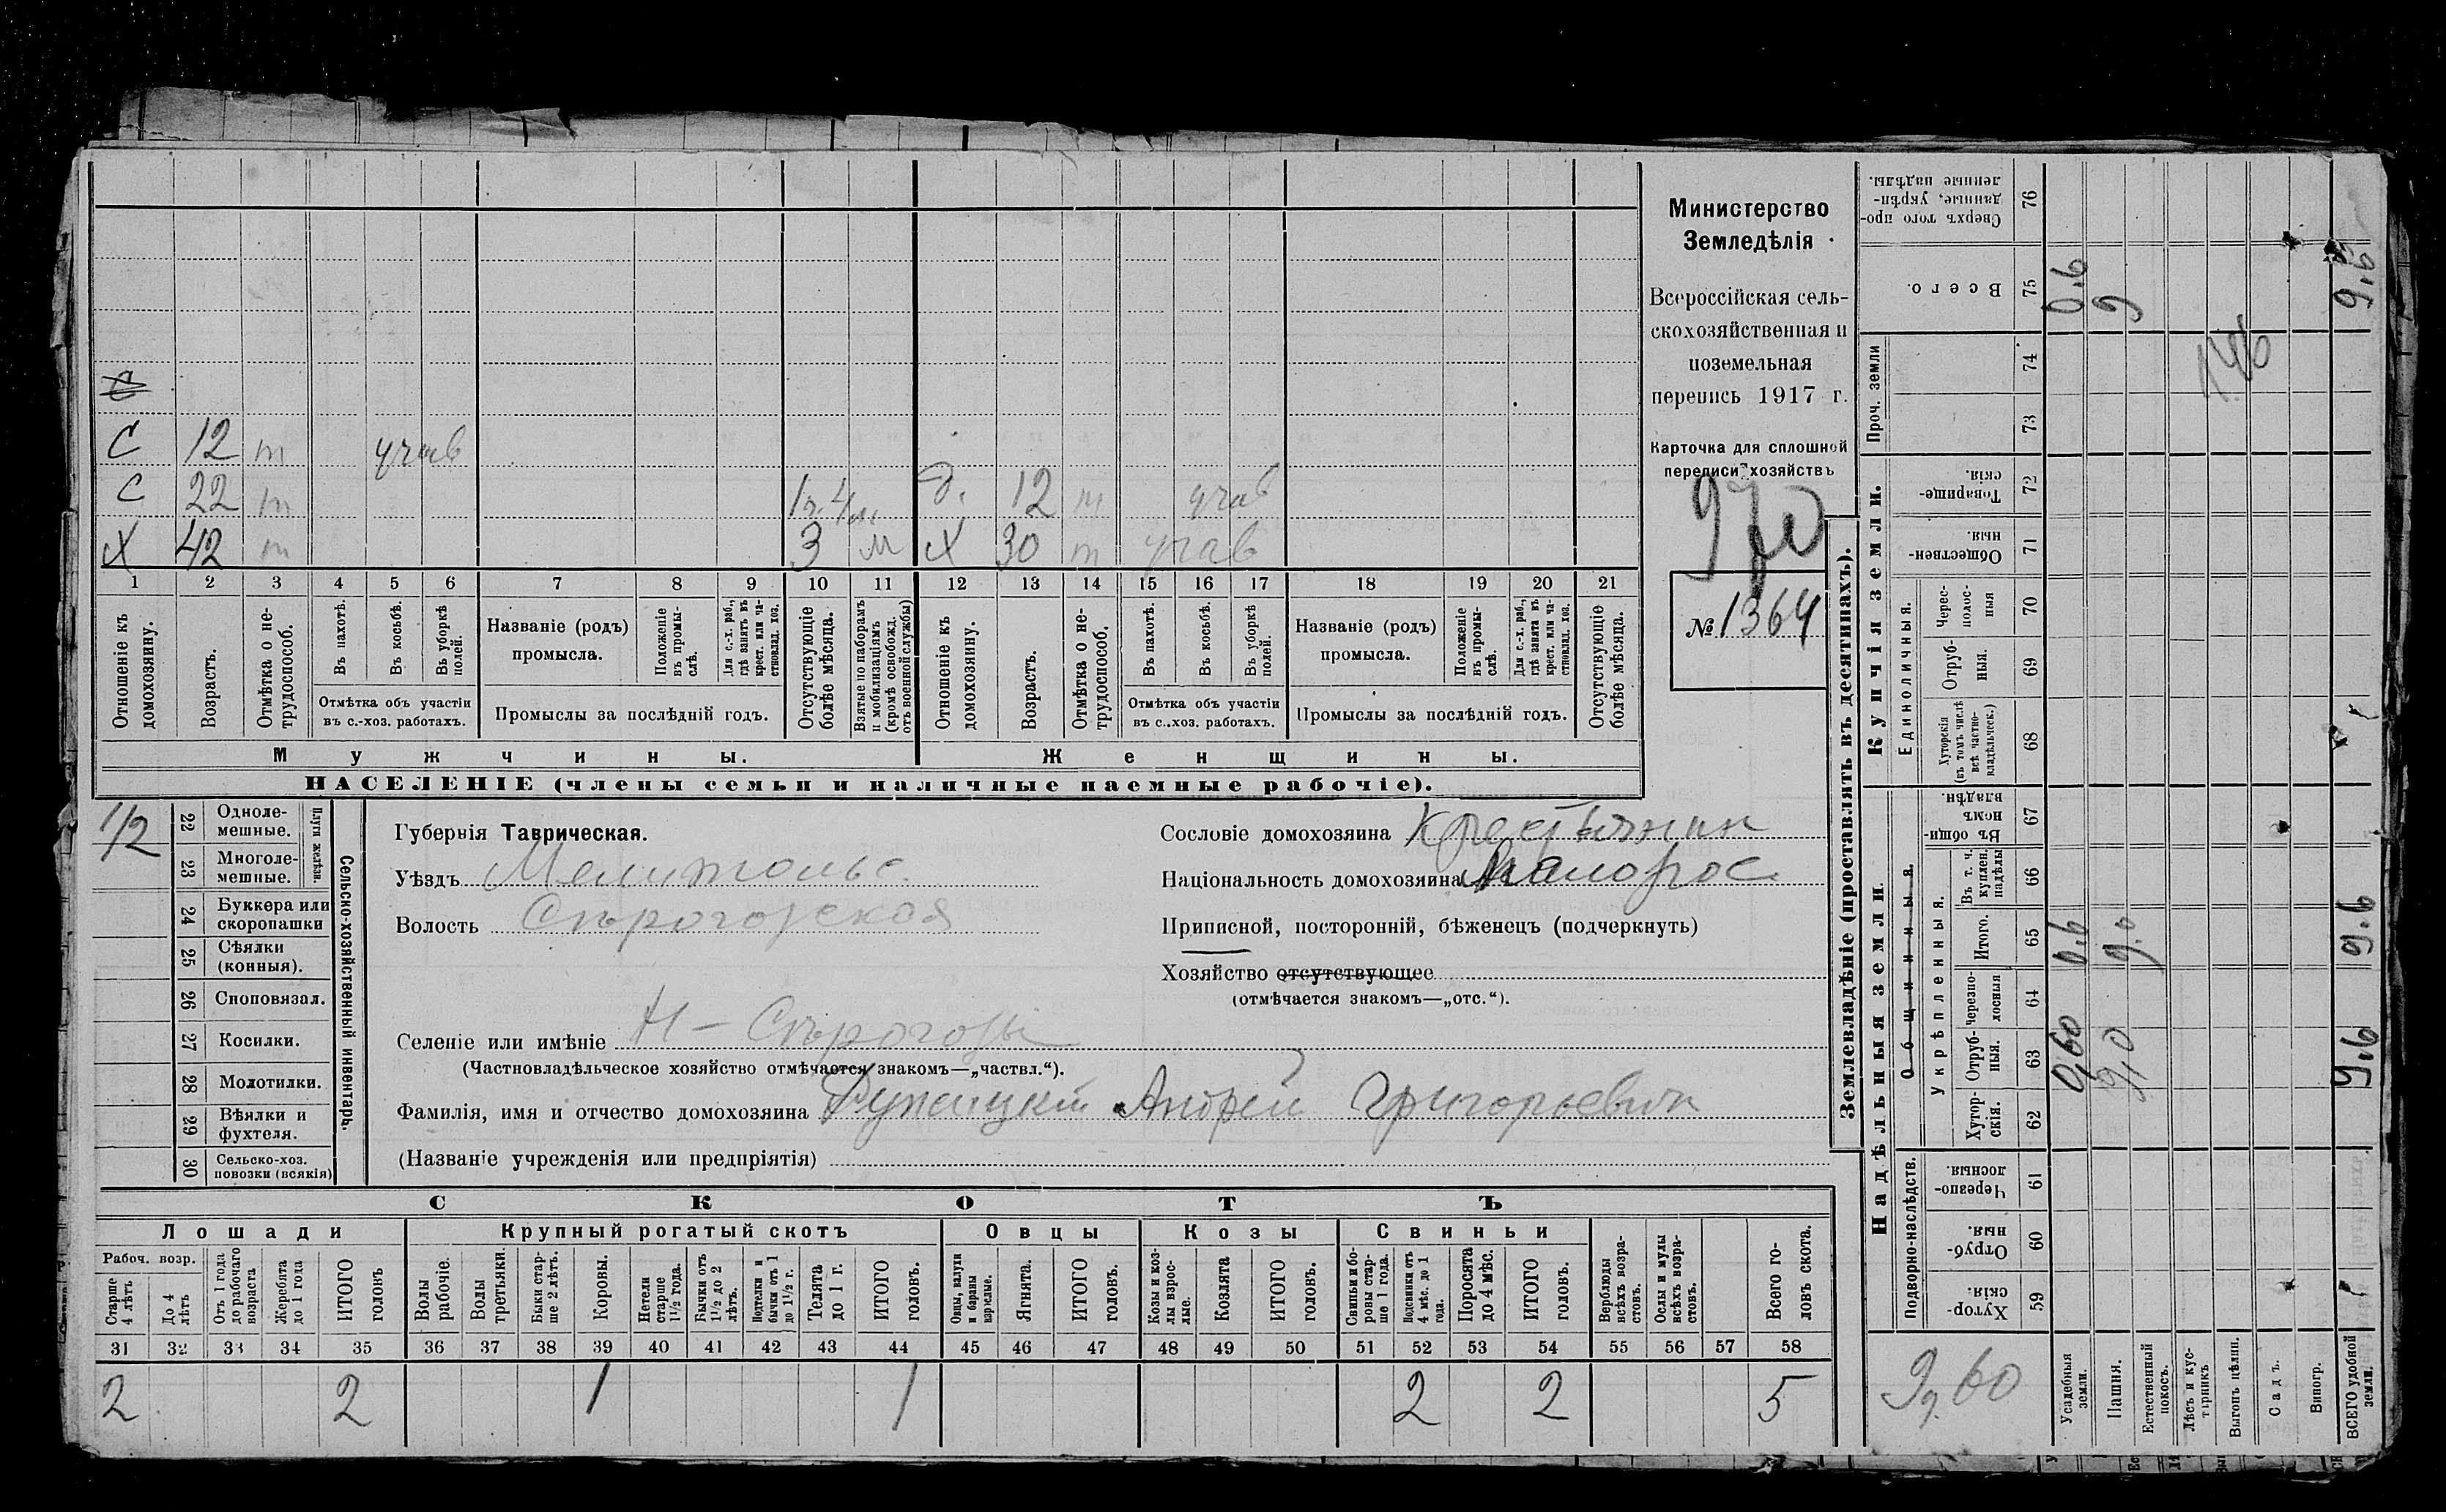 С
С 12 т учав
С 22 т 1г. 4м. д. 12 т учав
Х 42 т 3 м Х 30 т учав
1 2 3 4 5 6 7 8 9 10 11 12 13 14 15 16 17 18 19 20 21
Отношеніе къ домохозяину.
Возрастъ.
Отмѣтка о нетрудоспособ.
Въ пахотѣ.
Въ косьбѣ.
Въ уборкѣ полей.
Отмѣтка объ участіи
въ с.-хоз. работахъ.
Названіе (родъ)
промысла.
Положеніе въ промыслѣ.
Для с.-х. раб., гдѣ занятъ въ крест. или частновлад. хоз.
Промыслы за послѣдній годъ.
Отсутствующіе болѣе мѣсяца.
Взятые по наборамъ и мобилизаціямъ (кромѣ освобожд. отъ военной службы)
Отношеніе къ домохозяину.
Возрастъ.
Отмѣтка о нетрудоспособ.
Въ пахотѣ.
Въ косьбѣ.
Въ уборкѣ полей.
Отмѣтка объ участіи
въ с.-хоз. работахъ.
Названіе (родъ)
промысла.
Положеніе въ промыслѣ.
Для с.-х. раб., гдѣ занята въ крест. или частновлад. хоз.
Промыслы за послѣдній годъ.
Отсутствующіе болѣе мѣсяца.
Мужчины.
Женщины.
НАСЕЛЕНІЕ (члены семьи и наличные наемные рабочіе).
Министерство
Земледѣлія
Всероссійская сель-
скохозяйственная и
поземельная
перепись 1917 г.
Карточка для сплошной
переписи хозяйствъ
970
№ 1364
1/2
22 Одноле-
мешные.
23 Многоле-
мешные.
Плуги желѣзн.
24 Буккера или
скоропашки
25 Сѣялки
(конныя).
26 Споповязал.
27 Косилки.
28 Молотилки.
29 Вѣялки и
фухтеля.
30 Сельско-хоз.
повозки (всякія)
Сельско-хозяйственный инвентарь.
Губернія Таврическая.
Уѣздъ Мелитопольс.
Волость Сѣрогозская
Селеніе или имѣніе Н-Сѣрогозы
(Частновладѣльческое хозяйство отмѣчается знакомъ—„частвл.“).
Фамилія, имя и отчество домохозяина Андрей Григорьевич
(Названіе учрежденія или предпріятія)
Сословіе домохозяина Крестьянин
Національность домохозяина Малорос
Приписной, посторонній, бѣженецъ (подчеркнуть)
Хозяйство отсутствующее
(отмѣчается знакомъ—„отс.“).
СКОТЪ
Лошади
Крупный рогатый скотъ
Овцы
Козы
Свиньи
Рабоч. возр.
Старше 4 лѣтъ
До 4 лѣтъ
Отъ 1 года до рабочаго возраста
Жеребята до 1 года
ИТОГО головъ
Волы рабочіе.
Волы третьяки.
Быки старше 2 лѣтъ.
Коровы.
Нетели старше 1 1/2 года.
Бычки отъ 1 1/2 до 2 лѣтъ.
Подтелки и бычки отъ 1 до 1 1/2 г.
Телята до 1 г.
ИТОГО головъ.
Овцы, валухи и бараны взрослые.
Ягнята.
ИТОГО головъ.
Козы и козлы взрослые.
Козлята
ИТОГО головъ.
Свиньи и боровы старше 1 года.
Подсвинки отъ 4 мѣс. до 1 года.
Поросята до 4 мѣс.
ИТОГО головъ.
Верблюды всѣхъ возрастовъ.
Ослы и мулы всѣхъ возрастовъ.
Всего головъ скота.
31 32 33 34 35 36 37 38 39 40 41 42 43 44 45 46 47 48 49 50 51 52 53 54 55 56 57 58
2 2 1 1 2 2 5
Землевладѣніе (проставлять въ десятинахъ).
Надѣльныя земли.
Купчія земли.
Проч. земли
Подворно-наслѣдств.
Общинныя.
Укрѣпленныя.
Единоличныя.
Хуторскія. 59
Отрубныя. 60
Черезполосныя. 61
Хуторскія. 62
Отрубныя. 63
Черезполосныя 64
Итого. 65
Въ т. ч. куплен. надѣлы 66
Въ общиномъ владѣн. 67
Хуторскія (въ томъ числѣ всѣ частновладѣльческ.) 68
Отрубныя. 69
Чересполосныя 70
Общественныя. 71
Товарищескія. 72
73
74
Всего. 75
Сверхъ того проданные, укрѣпленные надѣлы. 76
9д. 60
Усадебныя земли. 0,60 0.6 0.6
Пашня. 9,0 9.0 9
Естественный покосъ.
Лѣсъ и кустарникъ
Выгонъ цѣлин.
Садъ.
Виногр.
ВСЕГО удобной земли. 9.6 9.6 9.6